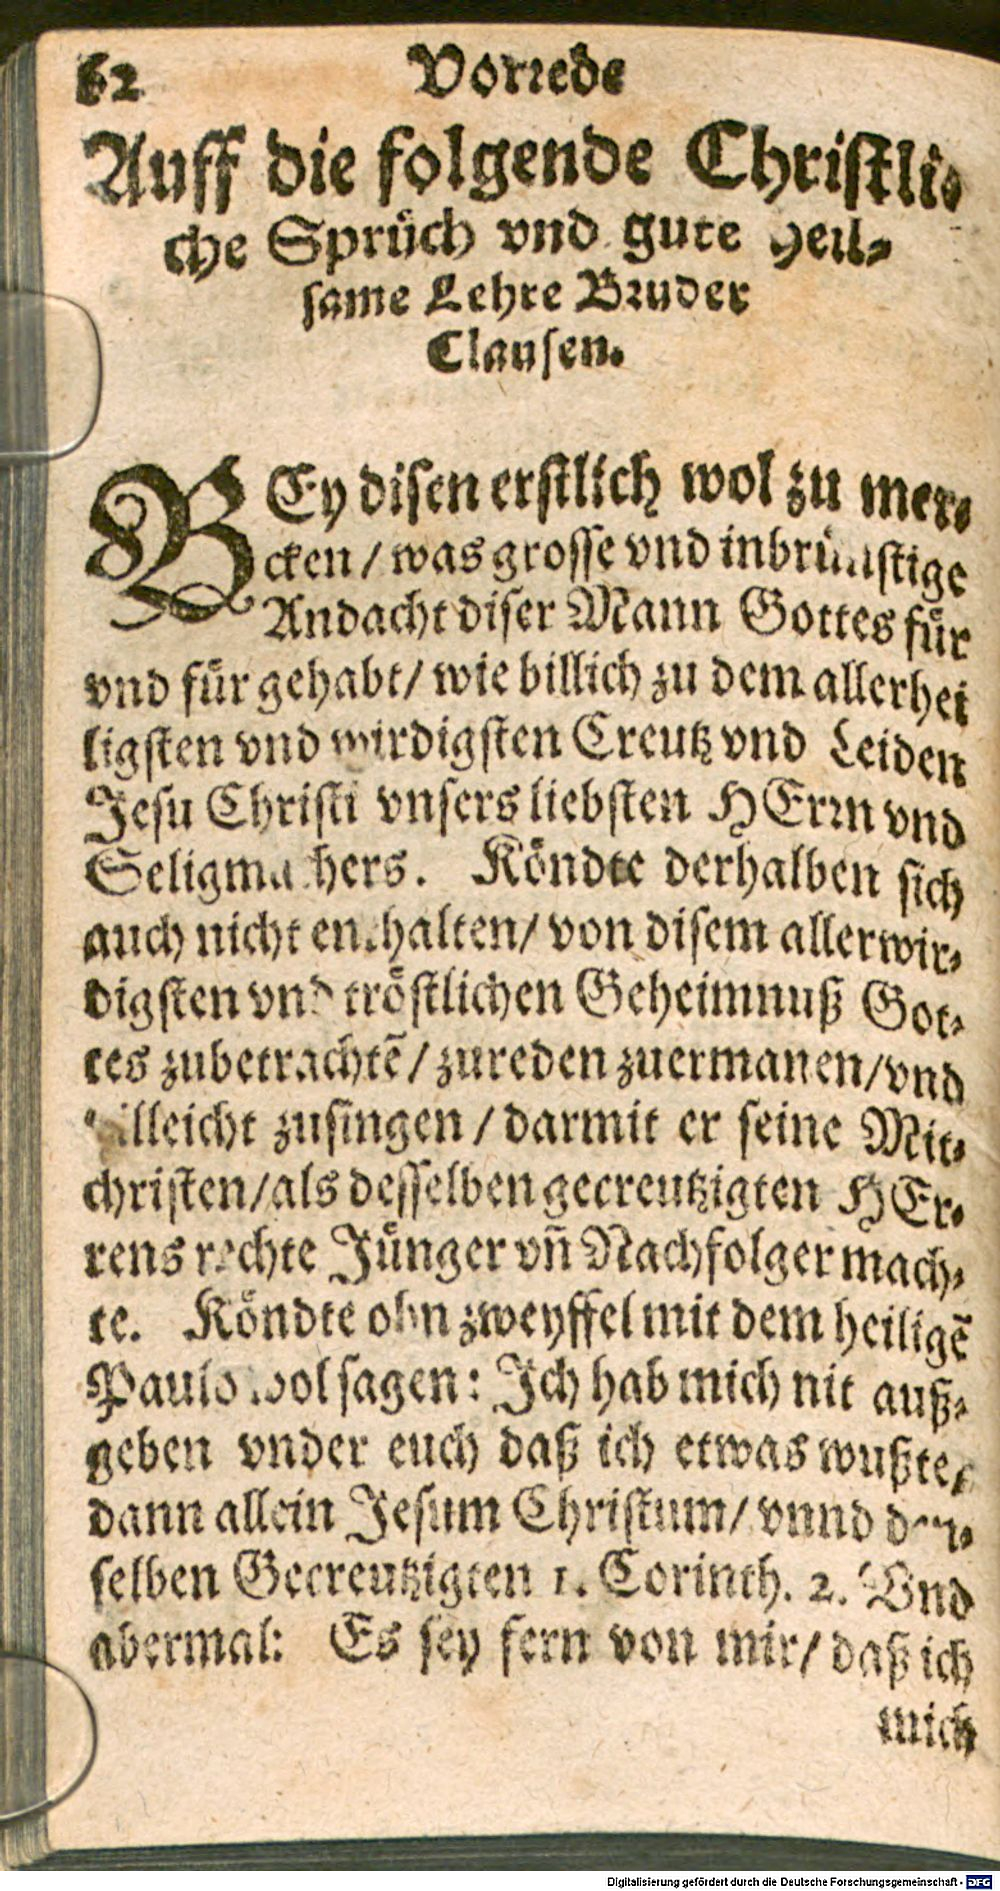 62 Vorrede
Auff die folgende Christli-
che Sprüch vnd gute heil-
same Lehre Bruder
Clausen.
BEy disen erstlich wol zu mer-
cken / was grosse vnd inbrünstige
Andacht diser Mann Gottes für
vnd für gehabt / wie billich zu dem allerhei
ligsten vnd wirdigsten Creutz vnd Leiden
Jesu Christi vnsers liebsten HErrn vnd
Seligmachers. Köndte derhalben sich
auch nicht enthalten / von disem allerwir-
digsten vnd tröstlichen Geheimnuß Got-
tes zubetrachtẽ / zureden zuermanen / vnd
villeicht zusingen / darmit er seine Mit-
christen / als desselben gecreutzigten HEr-
rens rechte Jünger vñ Nachfolger mach-
te. Köndte ohn zweyffel mit dem heiligẽ
Paulo wol sagen: Ich hab mich nit auß-
geben vnder euch daß ich etwas wußte /
dann allein Jesum Christum / vnnd den-
selben Gecreutzigten 1. Corinth. 2. Vnd
abermal: Es sey fern von mir / daß ich
mich
Digitalisierung gefördert durch die Deutsche Forschungsgemeinschaft - DFG